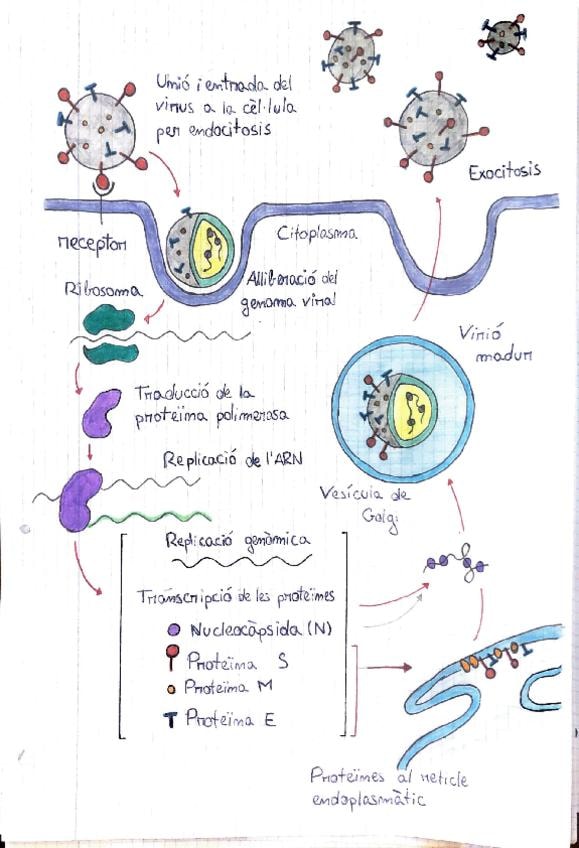 Unió i entrada del
virus a la cèl·lula
per endocitosis
Exocitosis
Citoplasma
receptor
Ribosoma
Alliberació del
genoma viral
Virió
madur
Traducció de la
proteïna polimerasa
Replicació de l'ARN
Vesícula de
Golgi
Replicació genòmica
Transcripció de les proteïnes
Nucleocàpsida (N)
Proteïna S
Proteïna M
Proteïna E
Proteïnes al reticle
endoplasmàtic